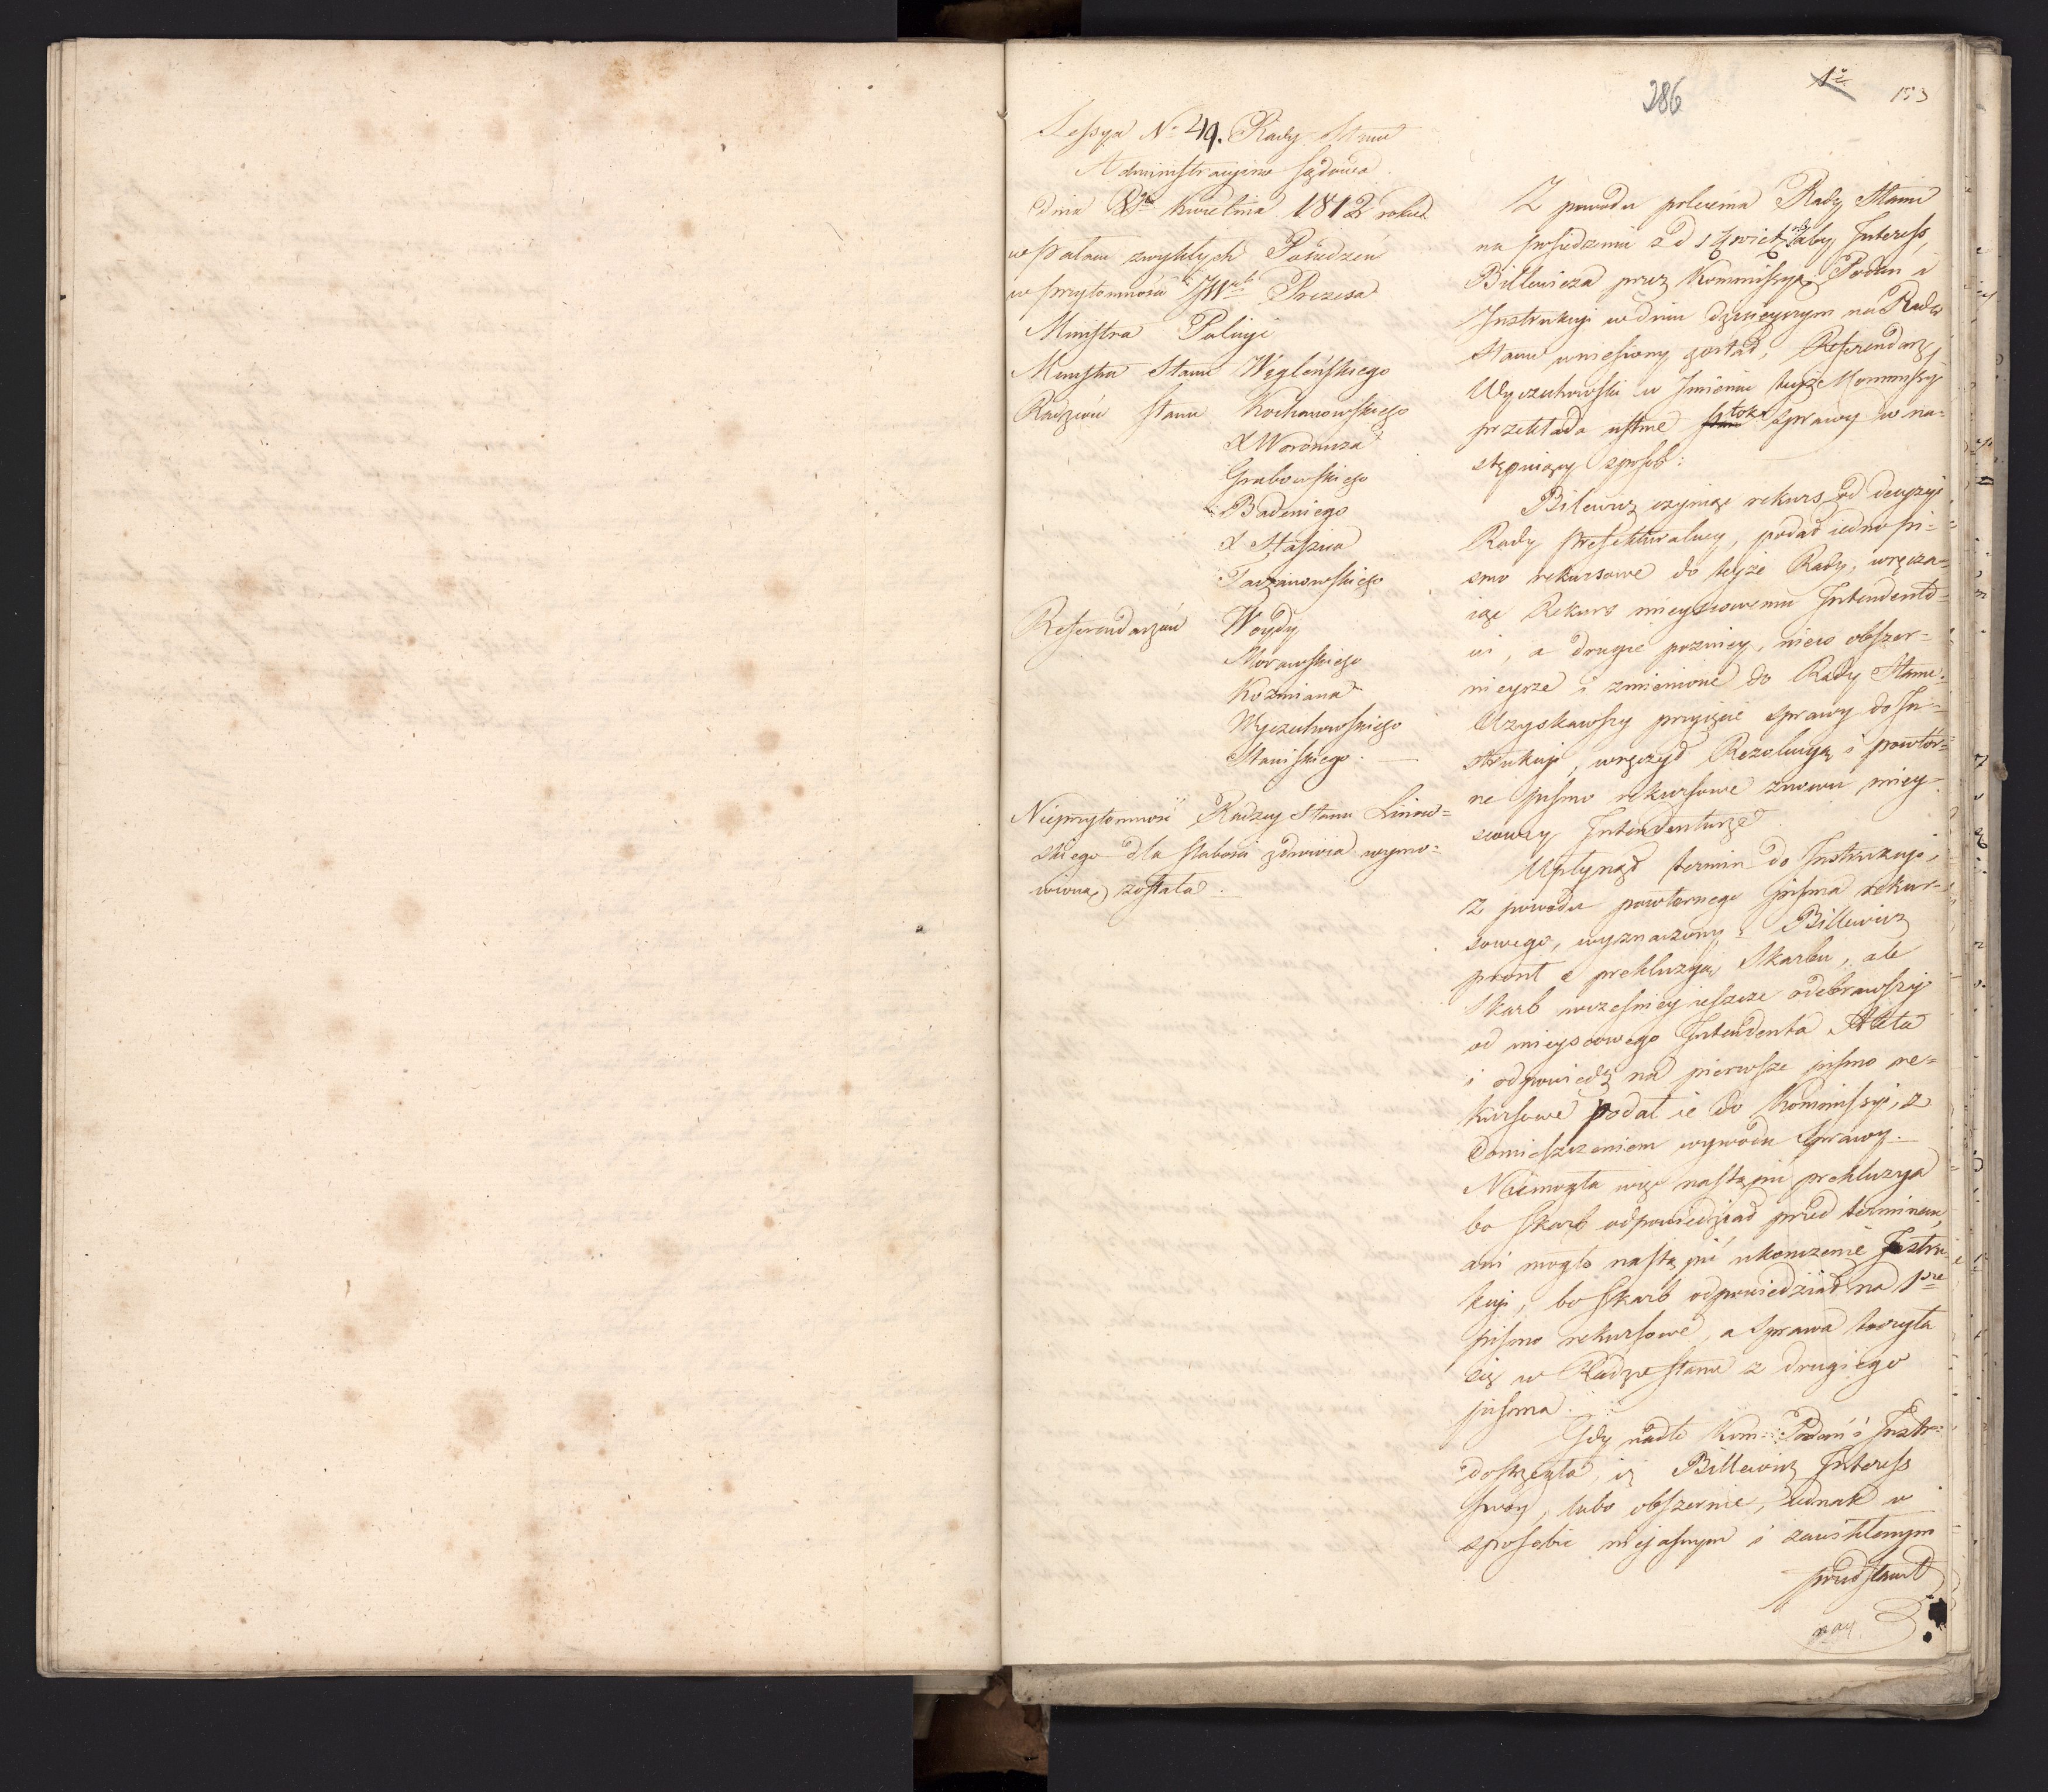 286
1º
153
Sessya Nº 49. Rady Stanu
Administracyino Sądowa
dnia 8go Kwietnia 1812 roku
w Pałacu zwykłych Posiedzeń
w przytomności JW Prezesa
Ministra Policyi
Ministra Stanu Węgleńskiego
Radzców Stanu Kochanowskiego
X Woronicza
Grabowskiego
Badeniego
X Staszica
Tarzanowskiego
Referendarzów Woydy
Morawskiego
Kozmiana
Wyczechowskiego
Staniskiego.
Nieprzytomność Radzcy Stanu Linow=
skiego dla słabości zdrowia wymo=
wioną została.
Z powodu polecenia Rady Stanu
na posiedzeniu z d 1 Kwiet: aby Interess
Billewicza przez Kommissyą Podań i
Instrukcyi w dniu dzisieyszym na Radę
Stanu wniesiony został, Referendarz
Wyczechowski w Imieniu teyże Kommissyi
przekłada ustnie tok sprawy w na=
stępuiący sposób:
Bilewicz czyniąc rekurs od decyzyi
Rady Prefekturalney, podał iedno pi=
smo rekursowe do teyże Rady, wręcza=
iąc Rekurs mieyscowemu Intendento=
wi, a drugie pozniey, nieco obszer=
nieysze i zmienione do Rady Stanu.
Uzyskawszy przyięcie sprawy do In=
strukcyi, wręczył Rezolucyą i powtór=
ne pismo rekursowe znowu miey=
scowey Intendenturze.
Upłynął termin do Instrukcyi,
z powodu powtornego pisma rekur=
sowego, wyznaczony: Billewicz
prosił o prekluzyą Skarbu, ale
Skarb wcześniey ieszcze odebrawszy
od mieyscowego Intendenta Akta
i odpowiedź na pierwsze pismo re=
kursowe podał ie do Kommissyi, z
domieszczeniem wywodu Sprawy.
Niemogła więc nastąpić prekluzya
bo Skarb odpowiedział przed terminem,
ani mogło nastąpić ukończenie Instru=
kcyi, bo Skarb odpowiedział na 1sze
pismo rekursowe, a Sprawa toczyła
się w Radzie Stanu z drugiego
pisma.
Gdy nadto Kom: Podań i Instr:
dostrzegła, iż Billewicz Interess
swóy, lubo obszernie, iednak w
sposobie niejasnym i zawikłanym
przedstawił